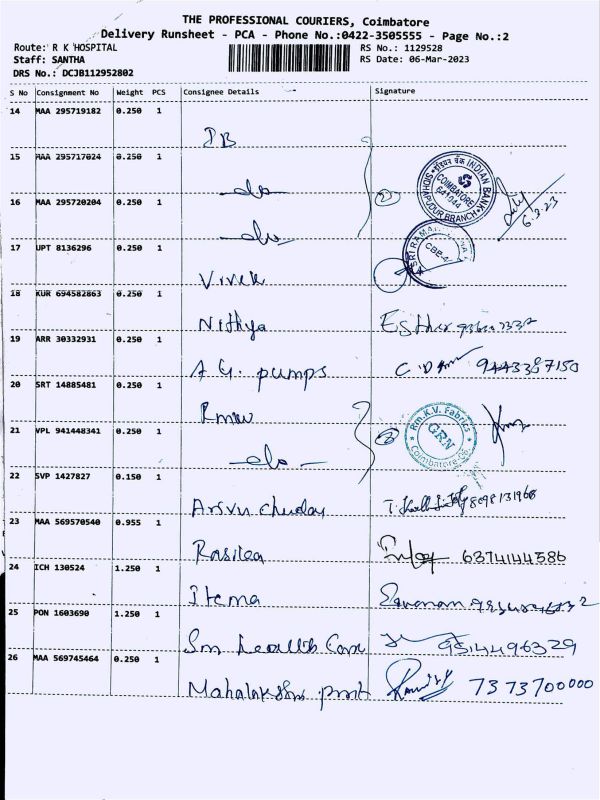 THE PROFESSIONAL COURIERS, Coimbatore
Delivery Runsheet - PCA - Phone No.:0422-3505555 - Page No.:2
Route: R K HOSPITAL RS No.: 1129528
Staff: SANTHA RS Date: 06-Mar-2023
DRS No.: DCJB112952802
S No Consignment No Weight PCS Consignee Details Signature
14 MAA 295719182 0.250 1
IB
15 MAA 295717024 0.250 1
do
16 MAA 295720204 0.250 1
do
INDIAN BANK
COIMBATORE
641044
BRANCH
6.3.23
17 UPT 8136296 0.250 1
Vivek
SRI RAMA
CBE-4
18 KUR 694582863 0.250 1
Nithya Esther
19 ARR 30332931 0.250 1
A G. pumps 9443387150
20 SRT 14885481 0.250 1
Rm.K.V. Fabrics
GRN
Coimbatore
21 VPL 941448341 0.250 1
do
22 SVP 1427827 0.150 1
Arivu 8098131968
23 MAA 569570540 0.955 1
Rasilea 6374144586
24 ICH 130524 1.250 1
Itema Saravanan
25 PON 1603690 1.250 1
Sm Health Care 9514496329
26 MAA 569745464 0.250 1
Mahalakshmi print 7373700000